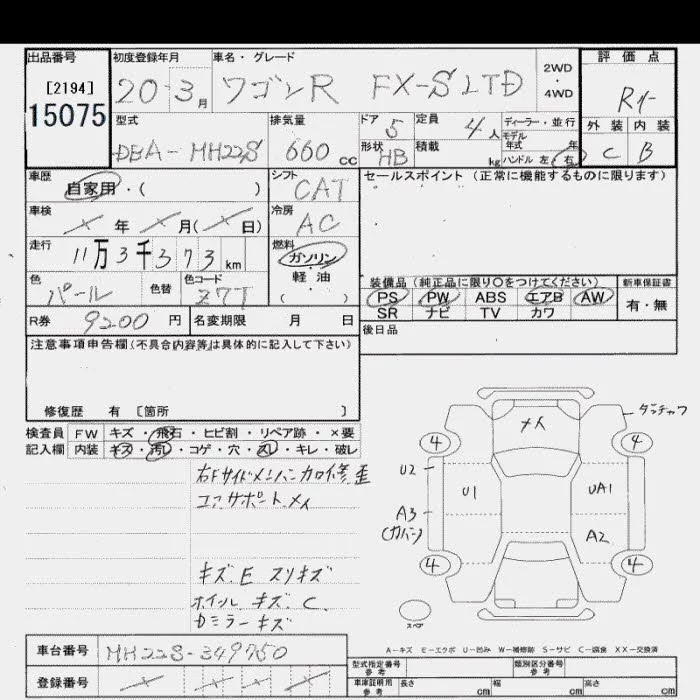 出品番号 初度登録年月 車名・グレード 評価点
[2194]
15075
20 3月 ワゴンR FX-S LTD 2WD・4WD R1-
型式 排気量 ドア 5 定員 4人 ディーラー・並行
モデル年式 年
外装 内装
DBA-MH22S 660cc 形状 HB 積載 kg ハンドル 左・右 C B
車歴 シフト セールスポイント(正常に機能するものに限ります)
自家用・( ) CAT
車検 年 月( 日) 冷房 AC
走行 11万3千373km 燃料
ガソリン・軽油
( )
色 パール 色替 色コード Z7T
装備品(純正品に限り○をつけてください) 新車保証書
PS PW ABS エアB AW 有・無
SR ナビ TV カワ
R券 9200円 名変期限 月 日 後日品
注意事項申告欄(不具合内容等は具体的に記入して下さい)
修復歴 有 [箇所 ]
検査員 FW キズ・飛石・ヒビ割・リペア跡・×要
記入欄 内装 キズ・汚レ・コゲ・穴・スレ・キレ・破レ
コアサポートメイ
キズ.E スリキズ
ホイールキズ.C
ミラーキズ
4 4
U2 U1 UA1
A3 A2
(カバー)
4 4
スペア
A-キズ E-エクボ U-凹み W-補修跡 S-サビ C-腐食 XX-交換済
車台番号 MH22S-349750
型式指定番号 参考 類別区分番号 参考
登録番号 車庫証明用 参考 長さ cm 幅 cm 高さ cm